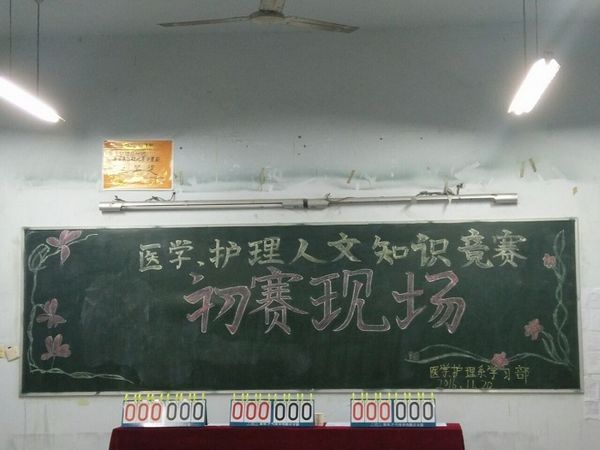 医学、护理人文知识竞赛
初赛现场
医学护理系学习部
2016.11.20
000 000
000 000
000 000